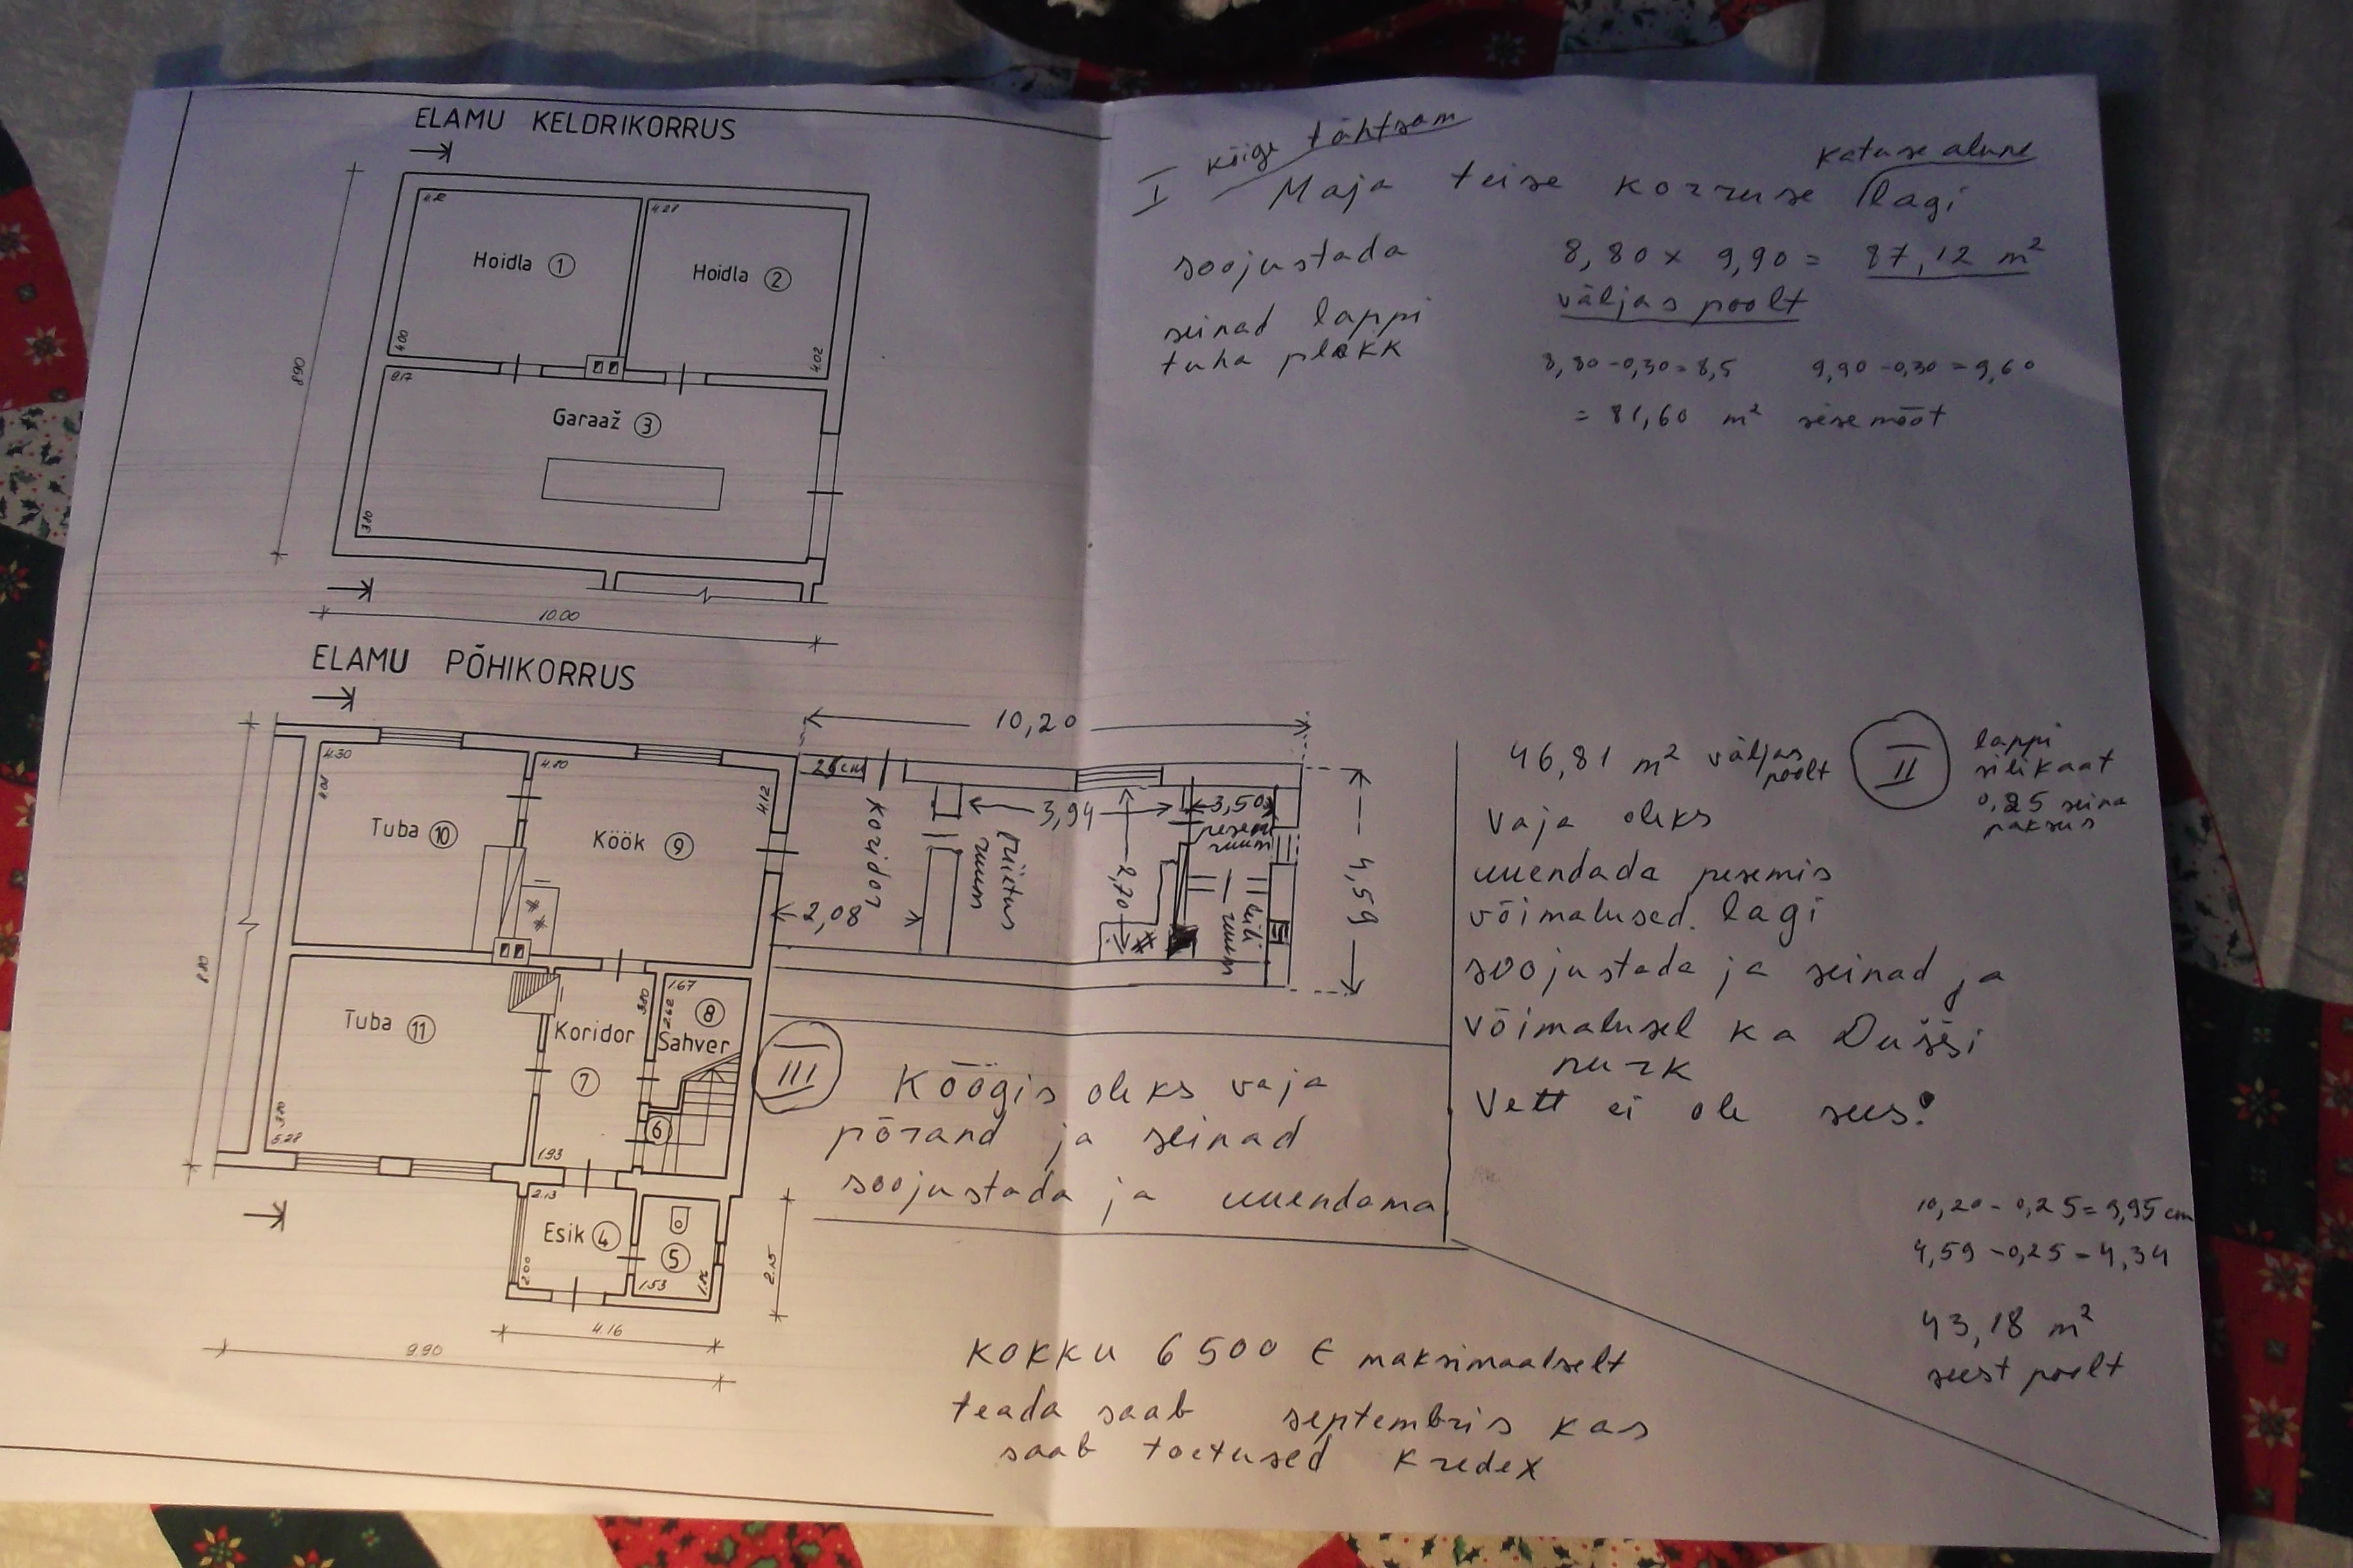 ELAMU KELDRIKORRUS
4.12
4.28
Hoidla 1
Hoidla 2
4.00
4.02
8.17
Garaaž 3
3.80
8.90
10.00
ELAMU PÕHIKORRUS
4.30
4.08
4.80
4.12
Tuba 10
Köök 9
8.80
Tuba 11
3.80
5.28
Koridor
7
3.80
1.93
1.67
2.62
8
Sahver
6
2.13
Esik 4
2.00
5
1.53
2.15
4.16
9.90
10,20
26cm
Koridor
2,08
3,94
riietus
ruum
2,70
3,50
pesem
ruum
leili
ruum
4,59
I kõige tähtsam
katuse alune
Maja teise korruse lagi
soojustada
8,80 x 9,90 = 87,12 m²
väljas poolt
seinad lappi
tuha plokk
8,80 - 0,30 = 8,5 9,90 - 0,30 = 9,60
= 81,60 m² sise mõõt
46,81 m² väljas
poolt
II
lappi
silikaat
0,25 seina
paksus
Vaja oleks
uuendada pesemis
võimalused. lagi
soojustada ja seinad ja
võimalusel ka Dušši
nurk
Vett ei ole sees!
10,20 - 0,25 = 9,95 cm
4,59 - 0,25 = 4,34
43,18 m²
seest poolt
III
Köögis oleks vaja
põrand ja seinad
soojustada ja uuendama
KOKKU 6500 € maksimaalselt
teada saab septembris kas
saab toetused Kredex